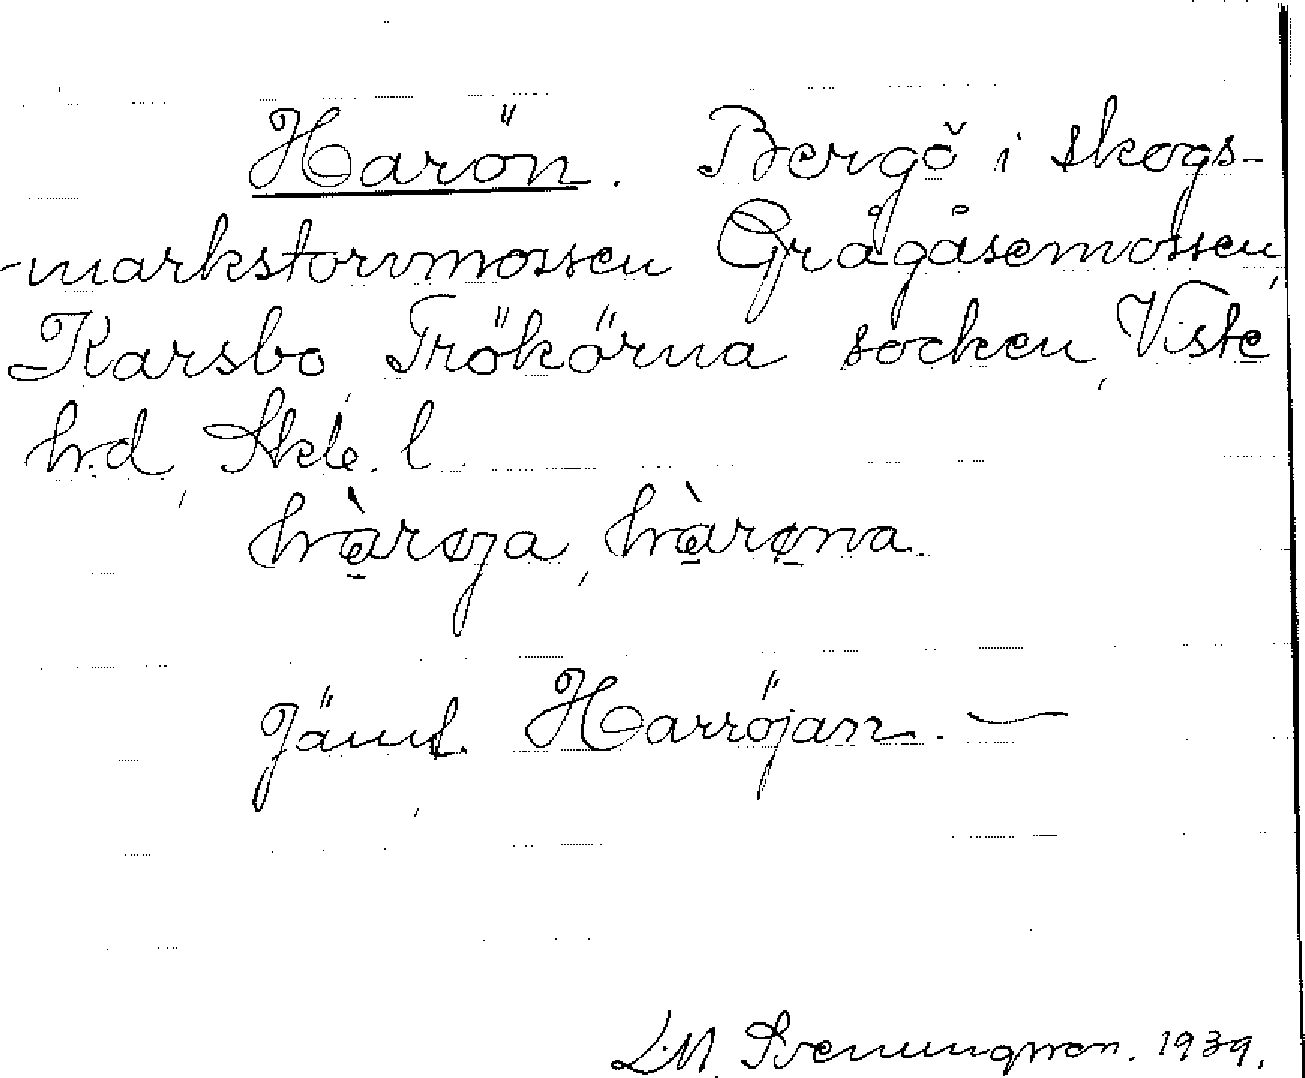 Harön. Bergö i skogs-
-markstorvmossen Grågåsemossen,
Karsbo, Frökörna socken, Viste
h.d., Skb. l.
hàrøja, hàrøna.
Jämt. Harröjan. —
L.M. Svenungsson. 1939.